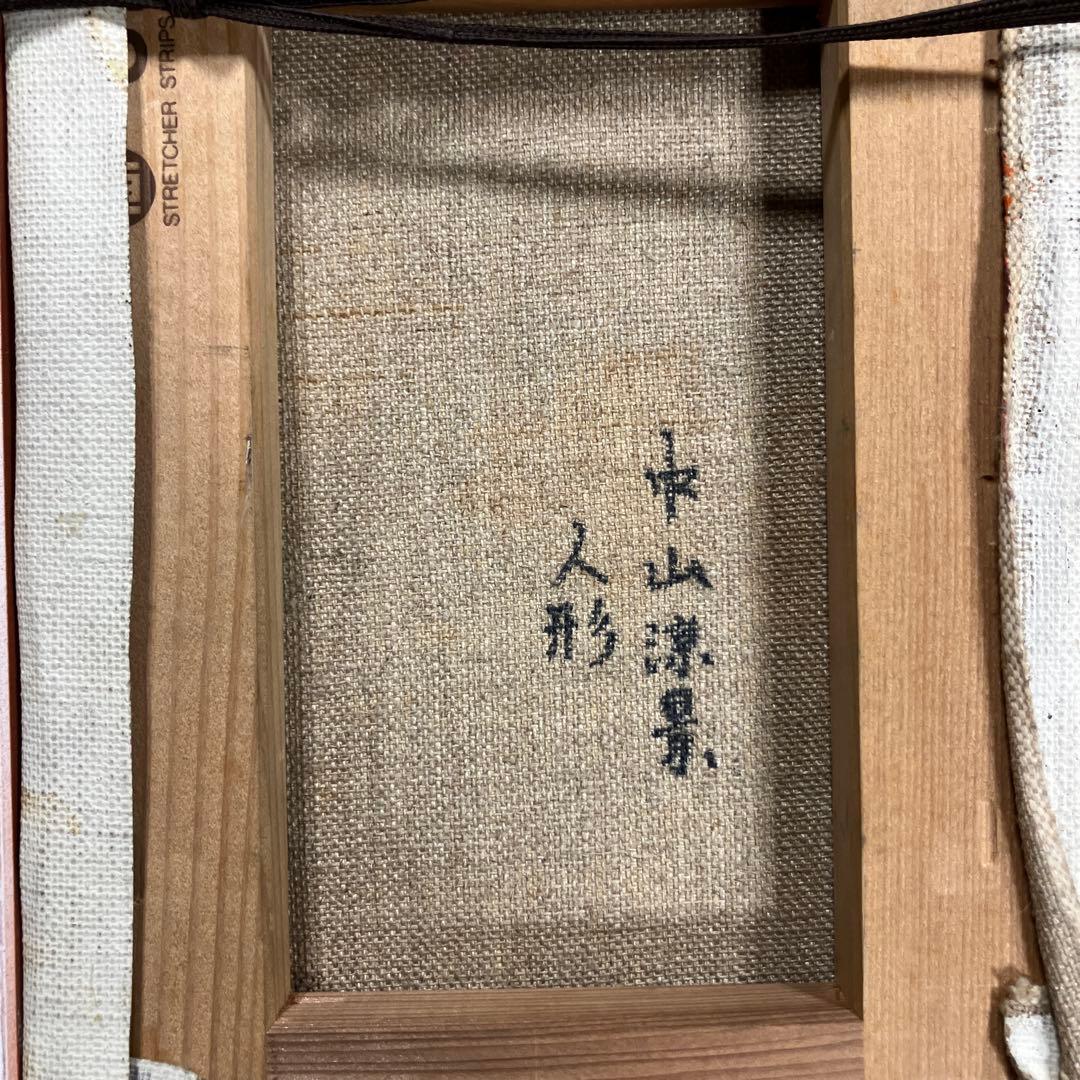 STRETCHER STRIPS
中山景
人形